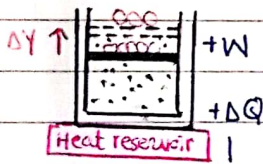 ΔY ↑
+W
+ΔQ
Heat reservoir